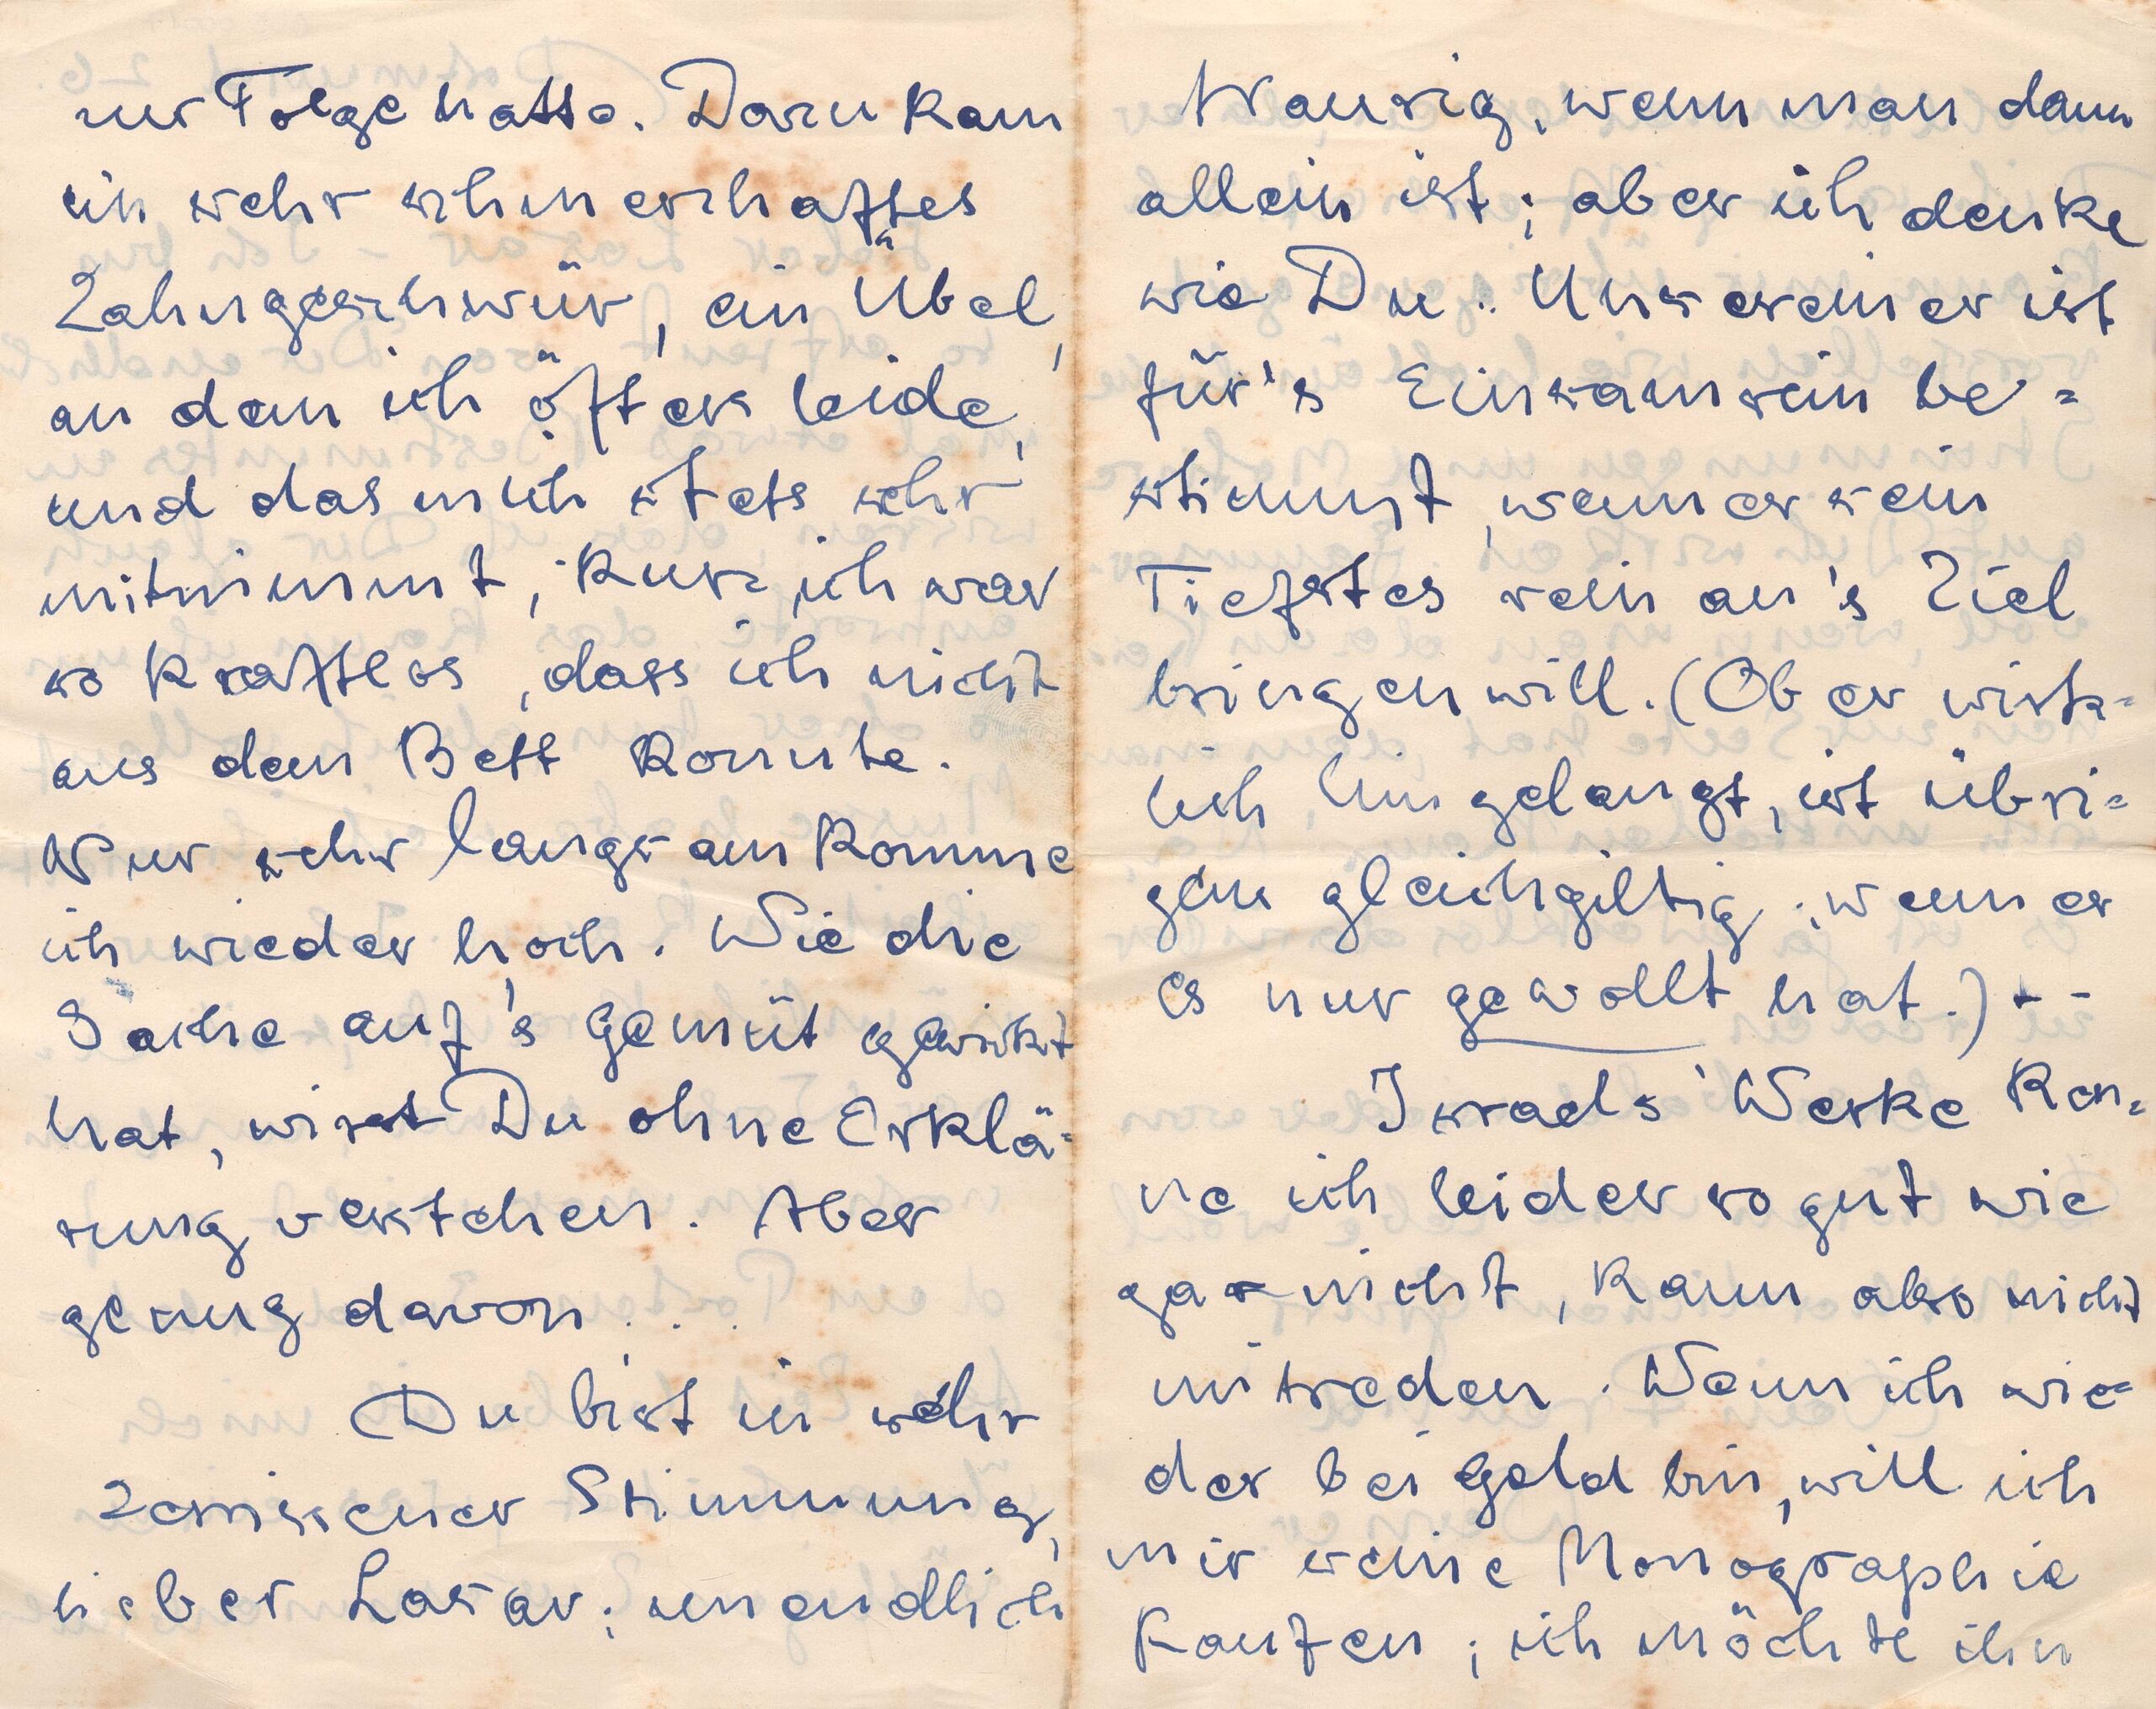 zur Folge hatte. Dazu kam
ein sehr schmerzhaftes
Zahngeschwür, ein Übel,
an dem ich öfters leide,
und das mich stets sehr
mitnimmt; kurz, ich war
so kraftlos, dass ich nicht
aus dem Bett konnte.
Nur sehr langsam komme
ich wieder hoch. Wie die
Sache auf's Gemüt gewirkt
hat, wirst Du ohne Erklä=
rung verstehen. Aber
genug davon...
Du bist in sehr
zerrissener Stimmung,
lieber Lasar; unendlich
traurig, wenn man dann
allein ist; aber ich denke
wie Du: Unsereiner ist
für's Einsamsein be=
stimmt, wenn er sein
Tiefstes rein an's Ziel
bringen will. (Ob er wirk=
lich hingelangt, ist übri=
gens gleichgiltig; wenn er
es nur gewollt hat.) --
Israels' Werke ken=
ne ich leider so gut wie
gar nicht, kann also nicht
mitreden. Wenn ich wie=
der bei Geld bin, will ich
mir seine Monographie
kaufen; ich möchte ihn